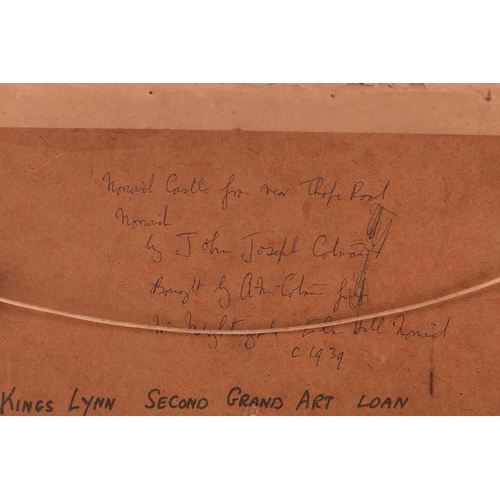 Norwich Castle from near Thorpe Road
Norwich
by John Joseph Cotman
Bought by A.M. Cotman from
Mr Elm Hill Norwich
c 1939
KINGS LYNN SECOND GRAND ART LOAN